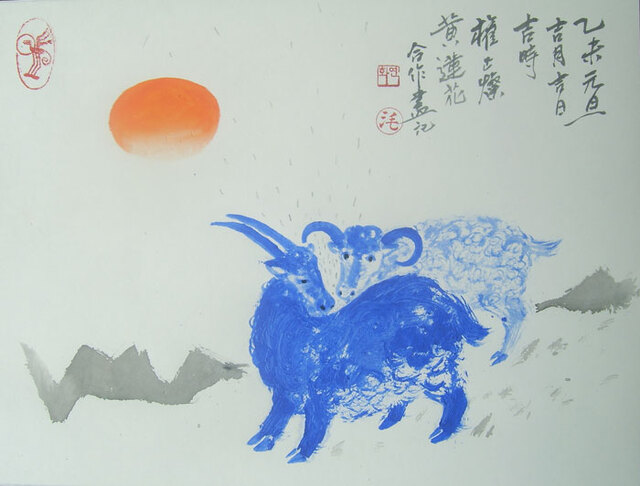 乙未元旦
吉月吉日
吉時
權五燦
黃蓮花
合作畫記
연화